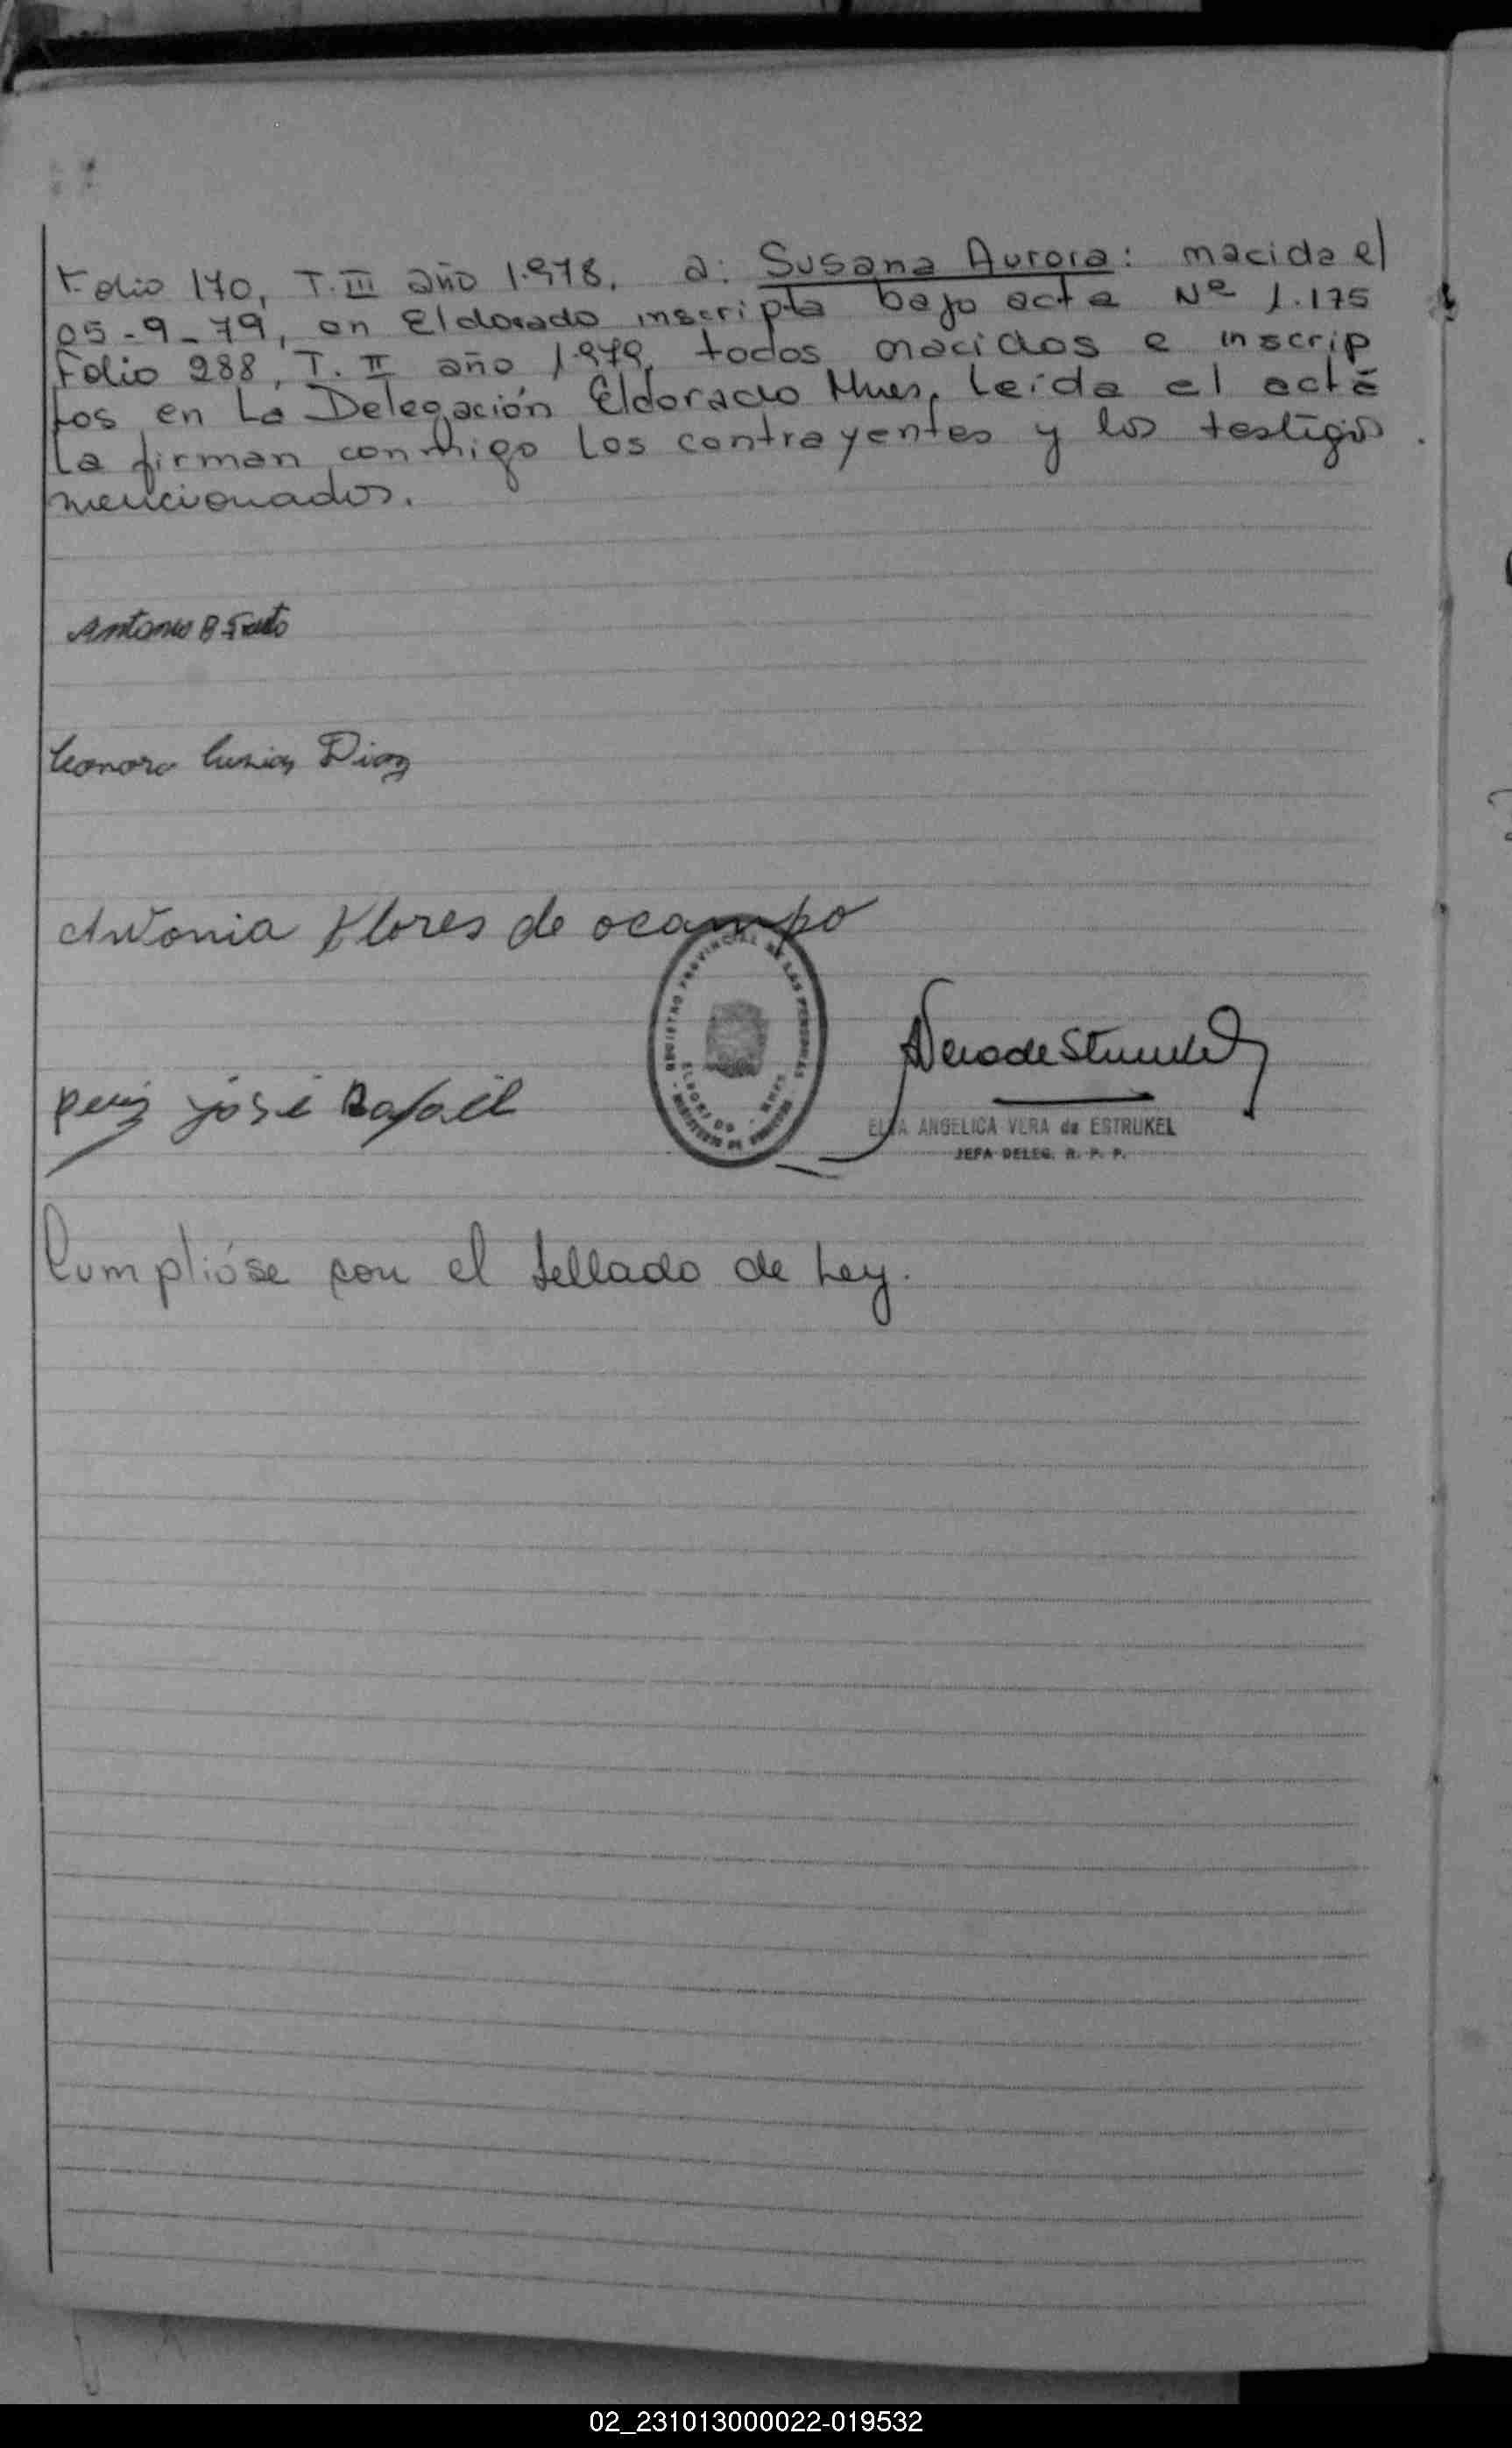 Folio 170, T. III año 1.978, a: Susana Aurora: nacida el
05-9-79, en Eldorado inscripta bajo acta Nº 1.175
Folio 288, T. II año 1.979, todos nacidos e inscrip
tos en La Delegación Eldorado Mnes. Leída el acta
La firman conmigo los contrayentes y los testigos
mencionados.
Antonio B
Leonora Lucia Diaz
Antonia Flores de ocampo
REGISTRO PROVINCIAL DE LAS PERSONAS
ELDORADO - MNES
MINISTERIO DE GOBIERNO
AVera de Strukel
José Rafael
ELVA ANGELICA VERA de ESTRUKEL
JEFA DELEG. R. P. P.
Cumplióse con el Sellado de Ley.
02_231013000022-019532